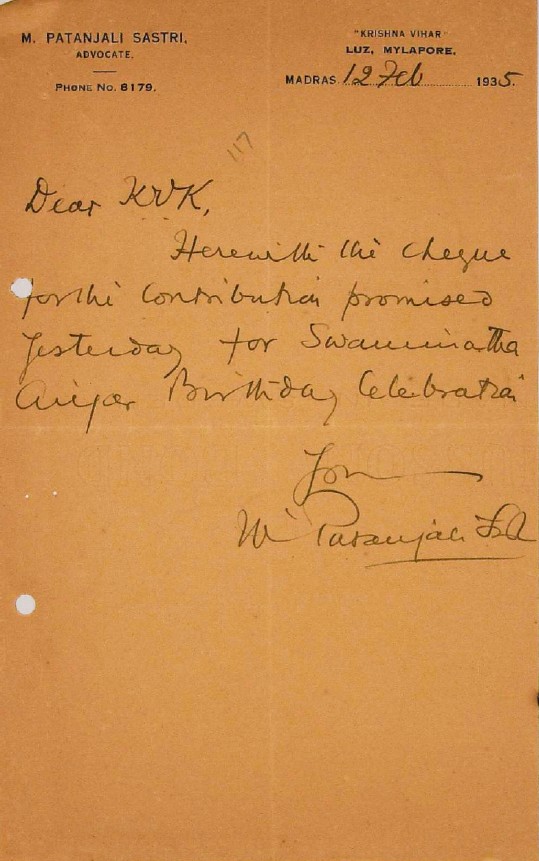 M. PATANJALI SASTRI,
ADVOCATE.
PHONE NO. 8179.
"KRISHNA VIHAR"
LUZ, MYLAPORE,
MADRAS 12 Feb 1935.
117
Dear KVK,
Herewith the cheque
for the contribution promised
yesterday for Swaminatha
Aiyar Birthday Celebration
Yours
M Patanjali Sastri